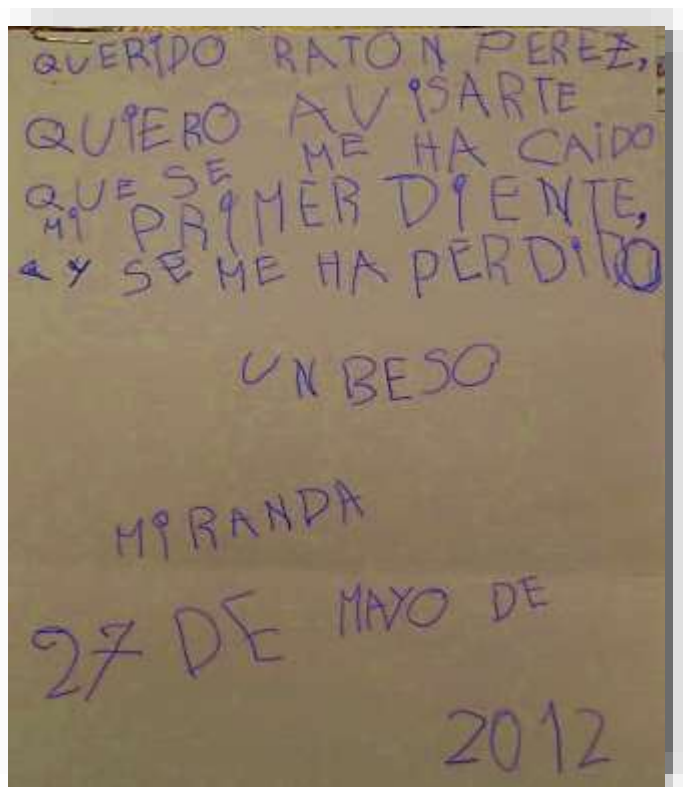 QUERIDO RATON PEREZ,
QUIERO AVISARTE
QUE SE ME HA CAIDO
MI PRIMER DIENTE,
Y SE ME HA PERDIDO
UN BESO
MIRANDA
27 DE MAYO DE
2012